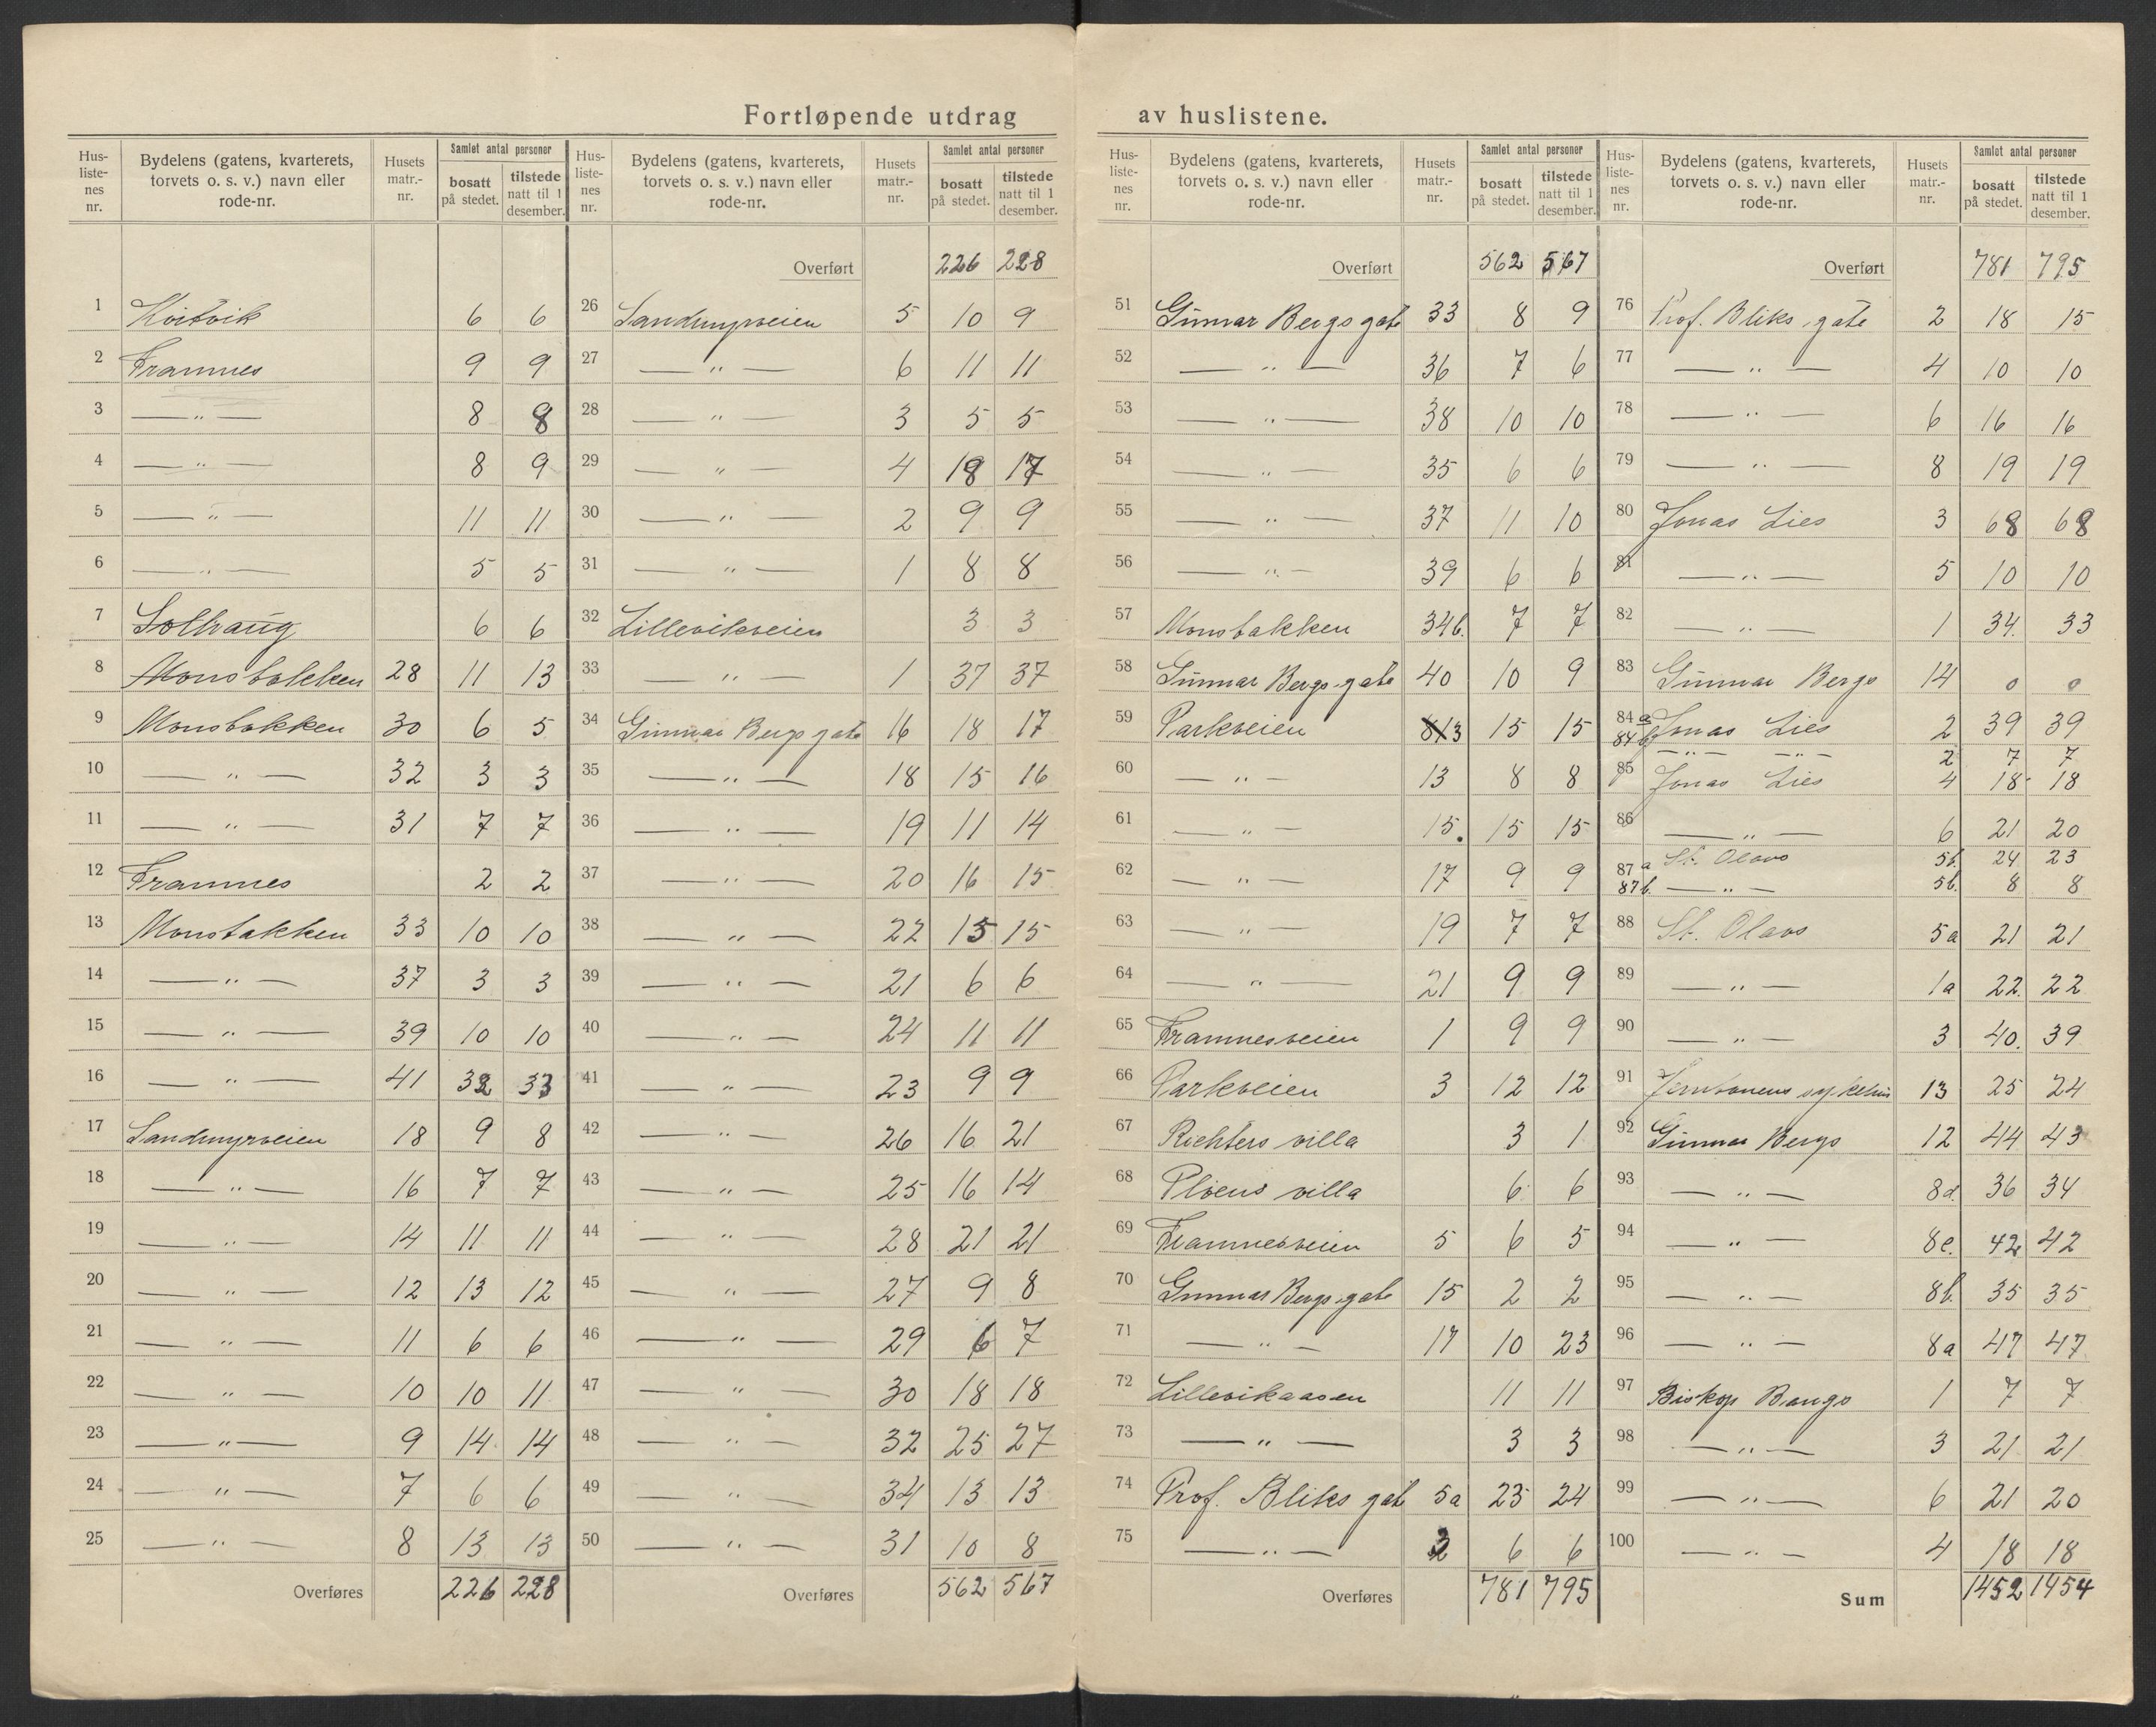 Fortløpende utdrag av huslistene.
Hus-listenes nr. | Bydelens (gatens, kvarterets, torvets o. s. v.) navn eller rode-nr. | Husets matr.-nr. | Samlet antal personer bosatt på stedet. | tilstede natt til 1 desember.
1 Kvitvik 6 6
2 Framnes 9 9
3 — " — 8 8
4 — " — 8 9
5 — " — 11 11
6 — " — 5 5
7 Solhaug 6 6
8 Monsbakken 28 11 13
9 Monsbakken 30 6 5
10 — " — 32 3 3
11 — " — 31 7 7
12 Framnes 2 2
13 Monsbakken 33 10 10
14 — " — 37 3 3
15 — " — 39 10 10
16 — " — 41 32 33
17 Sandmyrveien 18 9 8
18 — " — 16 7 7
19 — " — 14 11 11
20 — " — 12 13 12
21 — " — 11 6 6
22 — " — 10 10 11
23 — " — 9 14 14
24 — " — 7 6 6
25 — " — 8 13 13
Overføres 226 228
Hus-listenes nr. | Bydelens (gatens, kvarterets, torvets o. s. v.) navn eller rode-nr. | Husets matr.-nr. | Samlet antal personer bosatt på stedet. | tilstede natt til 1 desember.
Overført 226 228
26 Sandmyrveien 5 10 9
27 — " — 6 11 11
28 — " — 3 5 5
29 — " — 4 18 17
30 — " — 2 9 9
31 — " — 1 8 8
32 Lillevikveien 3 3
33 — " — 1 37 37
34 Gunnar Bergs gate 16 18 17
35 — " — 18 15 16
36 — " — 19 11 14
37 — " — 20 16 15
38 — " — 22 15 15
39 — " — 21 6 6
40 — " — 24 11 11
41 — " — 23 9 9
42 — " — 26 16 21
43 — " — 25 16 14
44 — " — 28 21 21
45 — " — 27 9 8
46 — " — 29 6 7
47 — " — 30 18 18
48 — " — 32 25 27
49 — " — 34 13 13
50 — " — 31 10 8
Overføres 562 567
Hus-listenes nr. | Bydelens (gatens, kvarterets, torvets o. s. v.) navn eller rode-nr. | Husets matr.-nr. | Samlet antal personer bosatt på stedet. | tilstede natt til 1 desember.
Overført 562 567
51 Gunnar Bergs gate 33 8 9
52 — " — 36 7 6
53 — " — 38 10 10
54 — " — 35 6 6
55 — " — 37 11 10
56 — " — 39 6 6
57 Monsbakken 34b. 7 7
58 Gunnar Bergs gate 40 10 9
59 Parkveien 13 15 15
60 — " — 13 8 8
61 — " — 15. 15 15
62 — " — 17 9 9
63 — " — 19 7 7
64 — " — 21 9 9
65 Framnesveien 1 9 9
66 Parkveien 3 12 12
67 Richters villa 3 1
68 Ploens villa 6 6
69 Framnesveien 5 6 5
70 Gunnar Bergs gate 15 2 2
71 — " — 17 10 23
72 Lillevikaasen 11 11
73 — " — 3 3
74 Prof. Bliks gate 5a 23 24
75 — " — 6 6
Overføres 781 795
Hus-listenes nr. | Bydelens (gatens, kvarterets, torvets o. s. v.) navn eller rode-nr. | Husets matr.-nr. | Samlet antal personer bosatt på stedet. | tilstede natt til 1 desember.
Overført 781 795
76 Prof. Bliks gate 2 18 15
77 — " — 4 10 10
78 — " — 6 16 16
79 — " — 8 19 19
80 Jonas Lies 3 68 68
81 — " — 5 10 10
82 — " — 1 34. 33
83 Gunnar Bergs 14 0 0
84a Jonas Lies 2 39 39
84b — " — — " — 2 7 7
85 Jonas Lies 4 18 18
86 — " — 6 21 20
87a St. Olavs 5b. 24 23
87b. — " — 5b. 8 8
88 St. Olavs 5a 21 21
89 — " — 1a 22. 22
90 — " — 3 40. 39
91 13 25 24
92 Gunnar Bergs 12 44 43
93 — " — 8d. 36 34
94 — " — 8c. 42 42
95 — " — 8b. 35 35
96 — " — 8a 47 47
97 Biskop Bangs 1 7 7
98 — " — 3 21 21
99 — " — 6 21 20
100 — " — 4 18 18
Sum 1452 1454